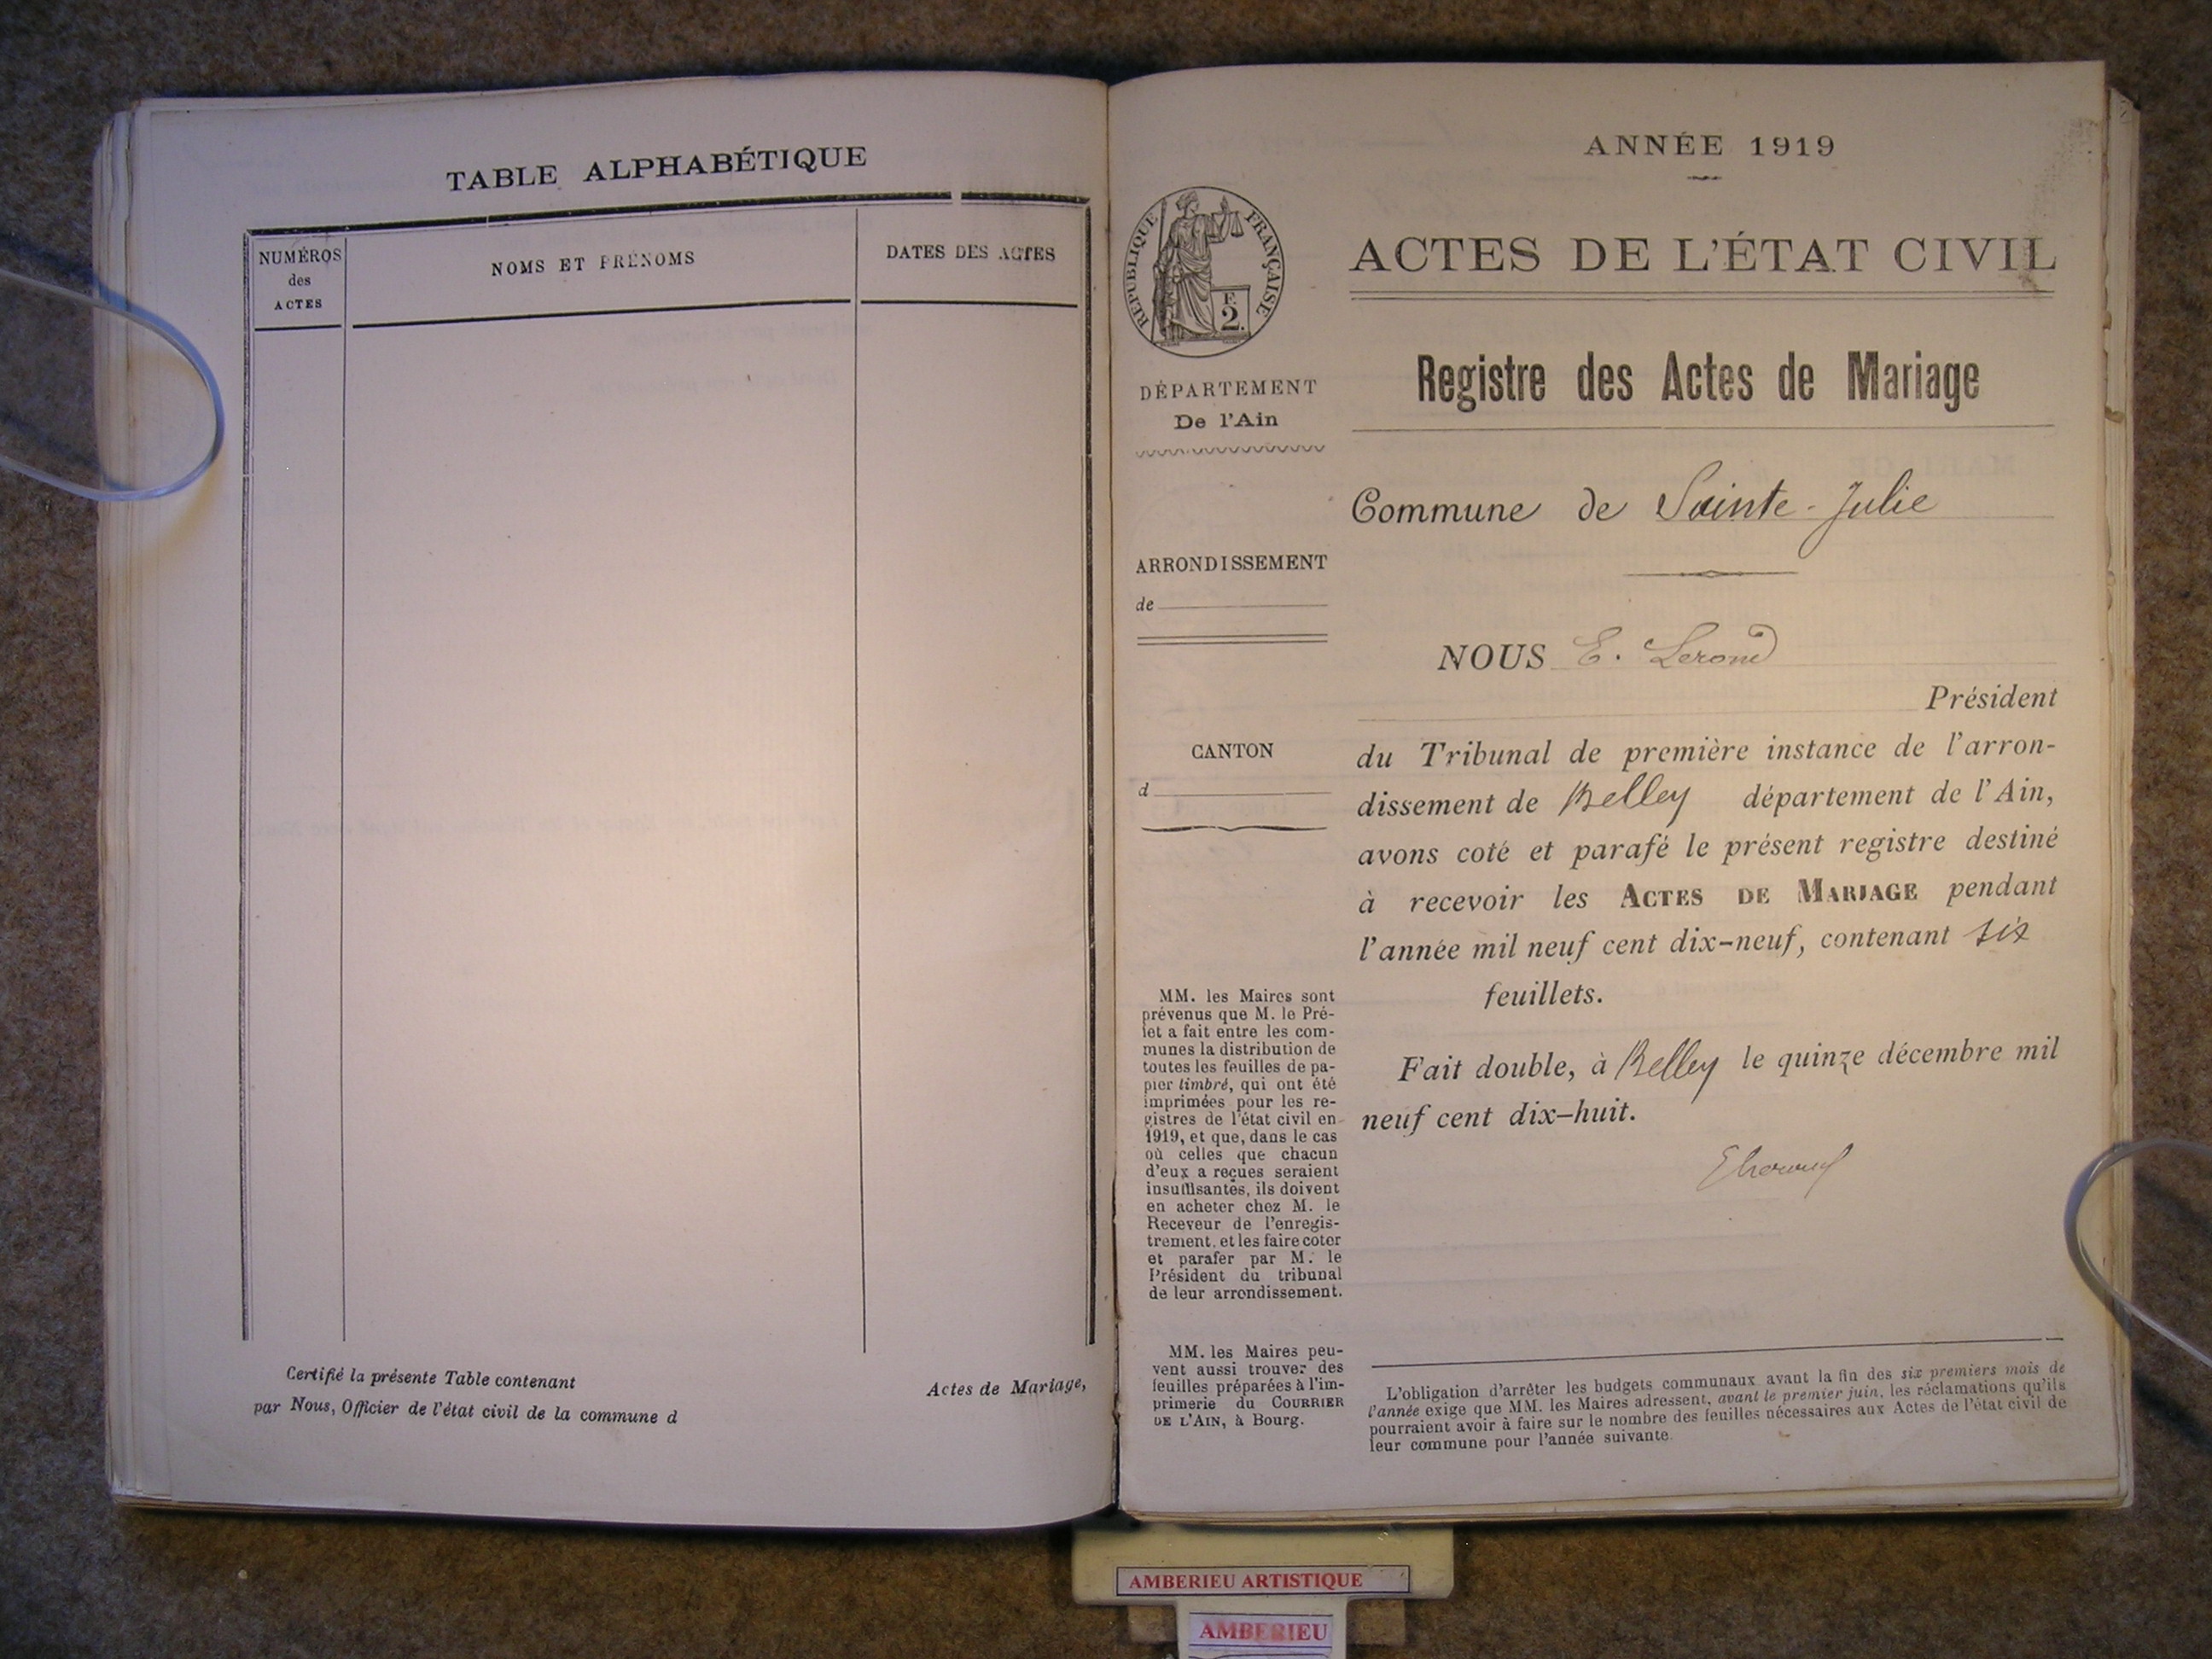 TABLE ALPHABÉTIQUE
NUMÉROS
des
ACTES
NOMS ET PRÉNOMS
DATES DES ACTES
Certifié la présente Table contenant
Actes de Mariage,
par Nous, Officier de l'état civil de la commune d
ANNÉE 1919
RÉPUBLIQUE FRANÇAISE
F.
2.
ACTES DE L'ÉTAT CIVIL
Registre des Actes de Mariage
DÉPARTEMENT
De l'Ain
Commune de Sainte-Julie
ARRONDISSEMENT
de
CANTON
d
NOUS E. Lerond
Président
du Tribunal de première instance de l'arron-
dissement de Belley département de l'Ain,
avons coté et parafé le présent registre destiné
à recevoir les ACTES DE MARIAGE pendant
l'année mil neuf cent dix-neuf, contenant six
feuillets.
Fait double, à Belley le quinze décembre mil
neuf cent dix-huit.
MM. les Maires sont
prévenus que M. le Pré-
fet a fait entre les com-
munes la distribution de
toutes les feuilles de pa-
pier timbré, qui ont été
imprimées pour les re-
gistres de l'état civil en
1919, et que, dans le cas
où celles que chacun
d'eux a reçues seraient
insuffisantes, ils doivent
en acheter chez M. le
Receveur de l'enregis-
trement, et les faire coter
et parafer par M. le
Président du tribunal
de leur arrondissement.
MM. les Maires peu-
vent aussi trouver des
feuilles préparées à l'im-
primerie du COURRIER
DE L'AIN, à Bourg.
L'obligation d'arrêter les budgets communaux avant la fin des six premiers mois de
l'année exige que MM. les Maires adressent, avant le premier juin, les réclamations qu'ils
pourraient avoir à faire sur le nombre des feuilles nécessaires aux Actes de l'état civil de
leur commune pour l'année suivante.
AMBERIEU ARTISTIQUE
AMBERIEU